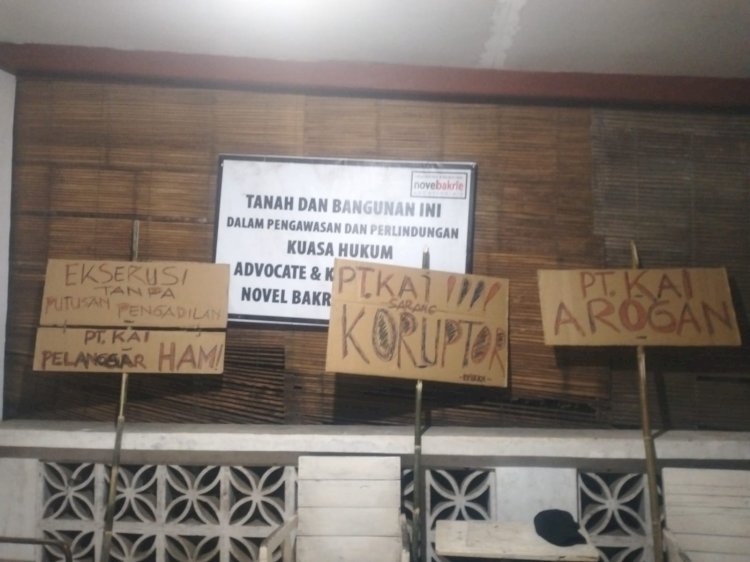 novebakrie
TANAH DAN BANGUNAN INI
DALAM PENGAWASAN DAN PERLINDUNGAN
KUASA HUKUM
ADVOCATE & K
NOVEL BAKR
EKSERUSI
TANPA
PUTUSAN PENGADILAN
PT. KAI
PELANGGAR HAM!
PT.KAI !!!!
SARANG
KORUPTOR
PT. KAI
AROGAN